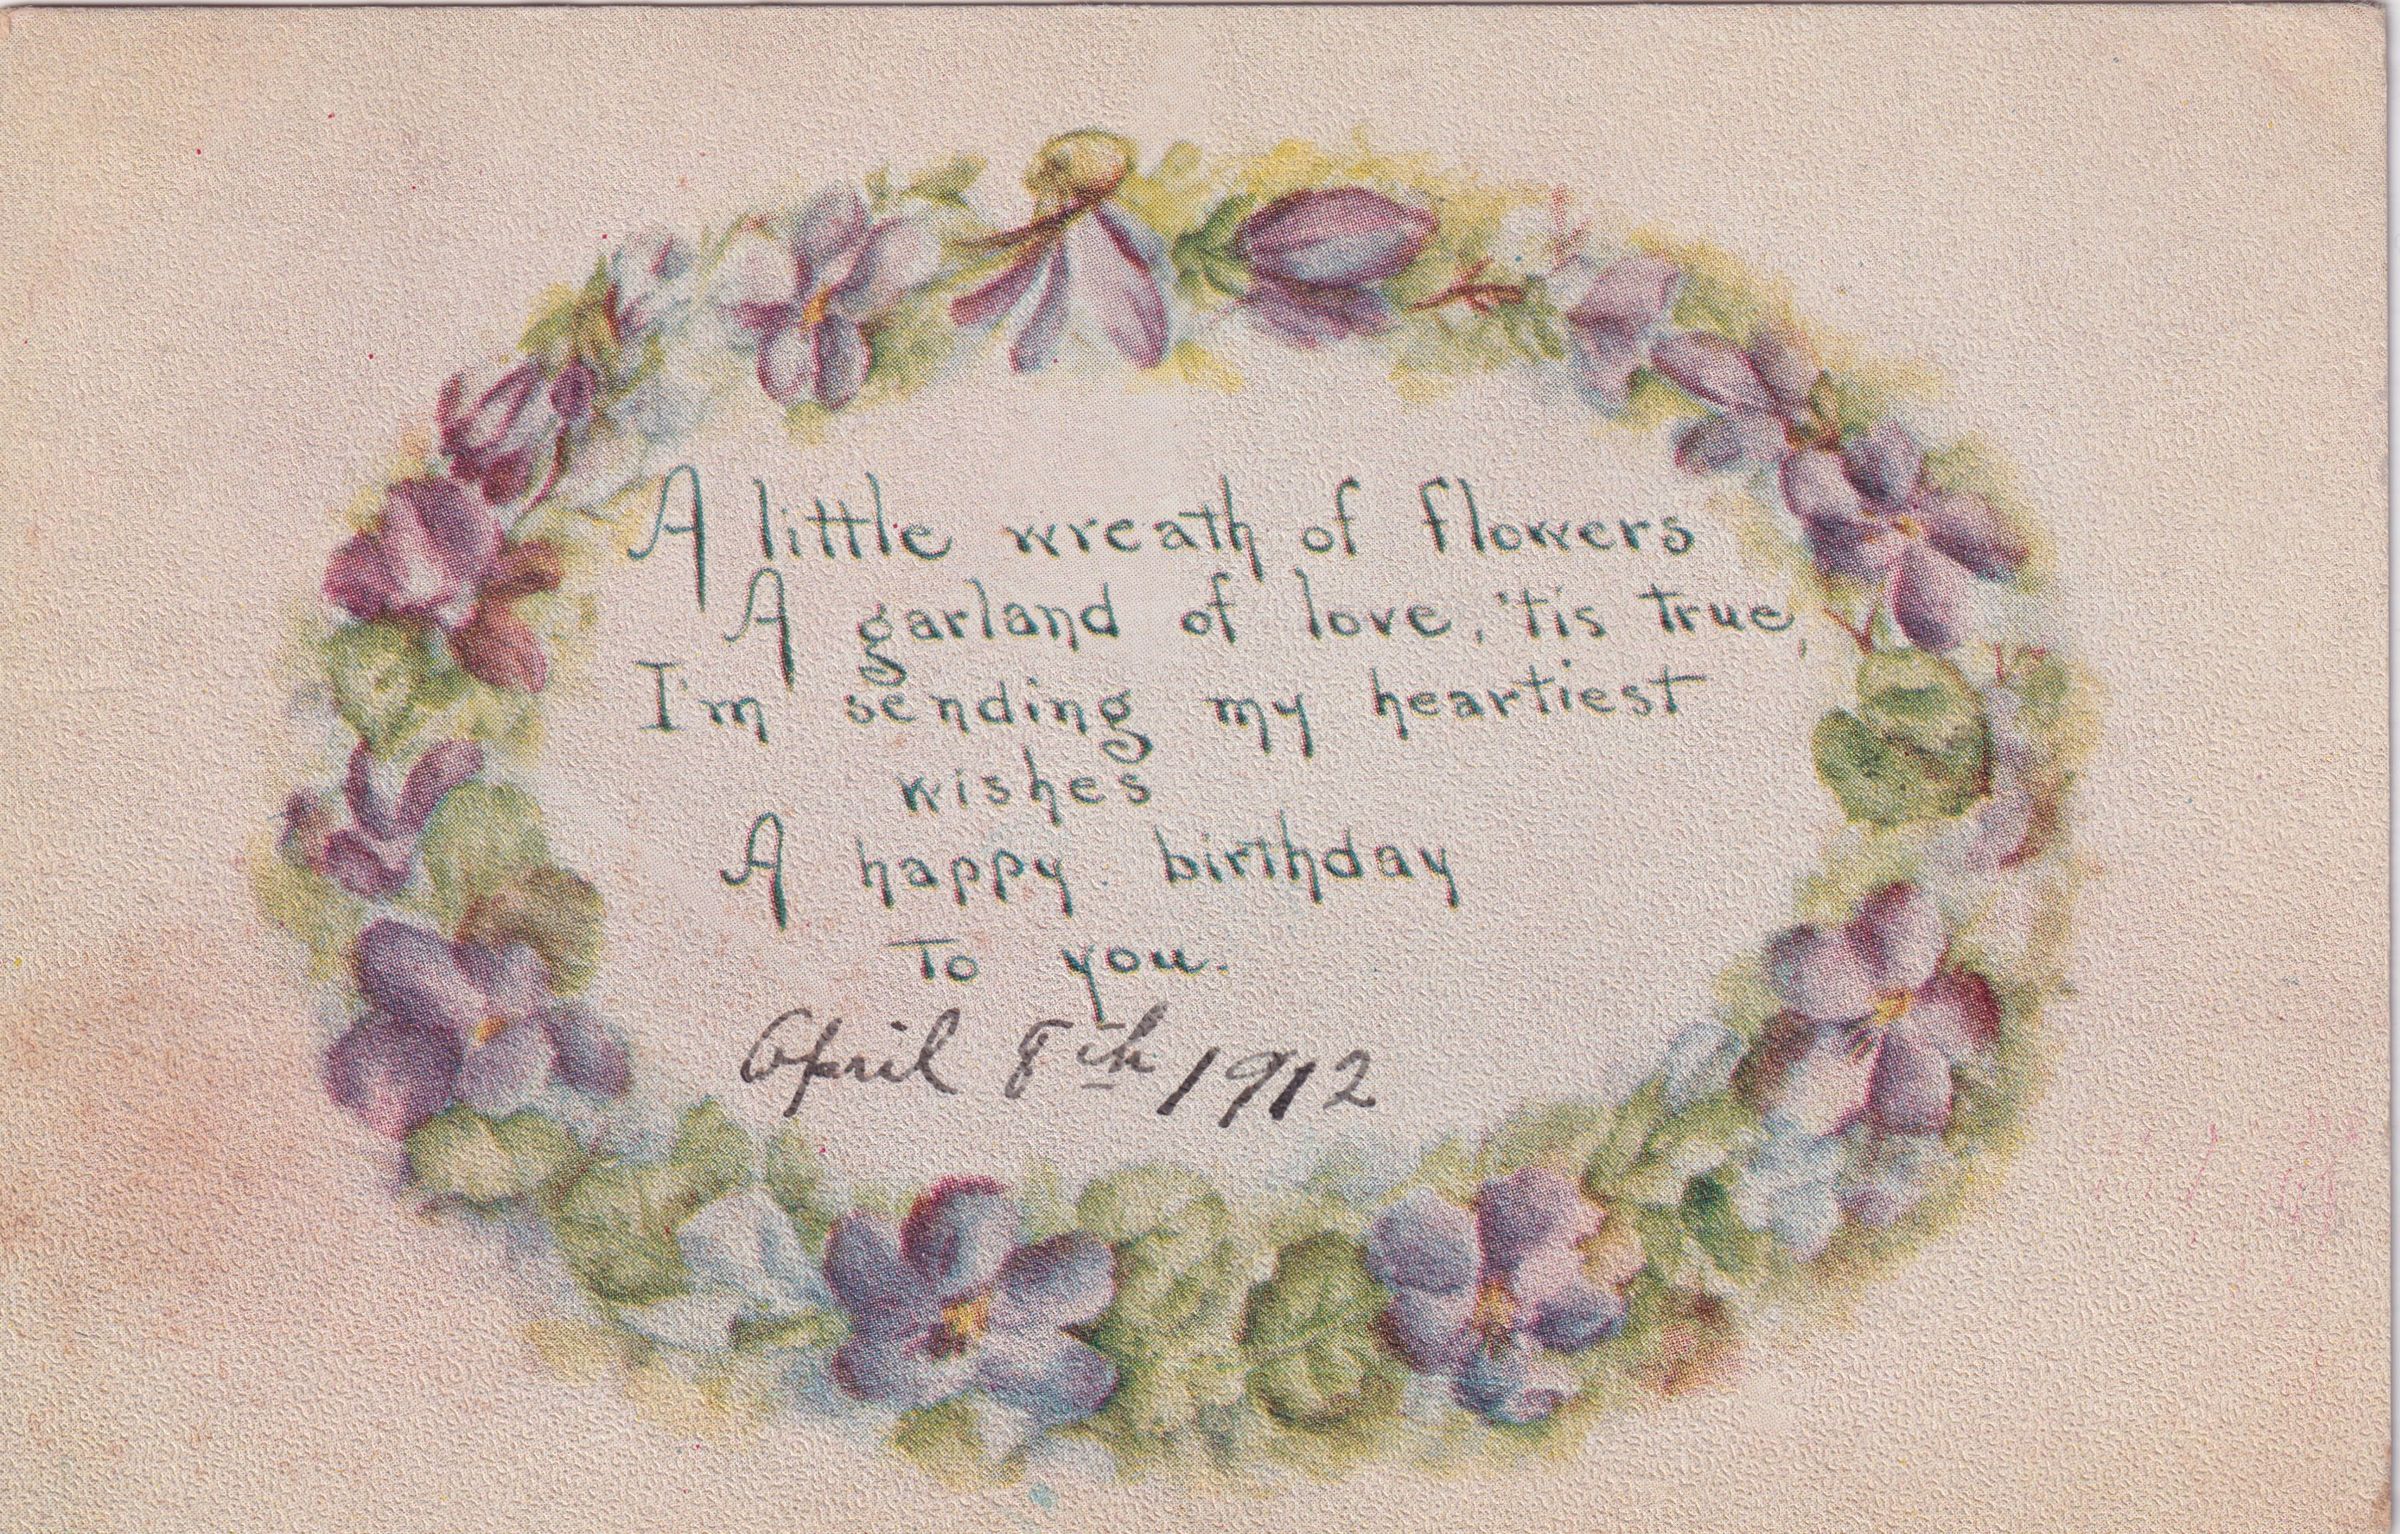 A little wreath of flowers
A garland of love, 'tis true,
I'm sending my heartiest
wishes
A happy birthday
To you.
April 8th 1912